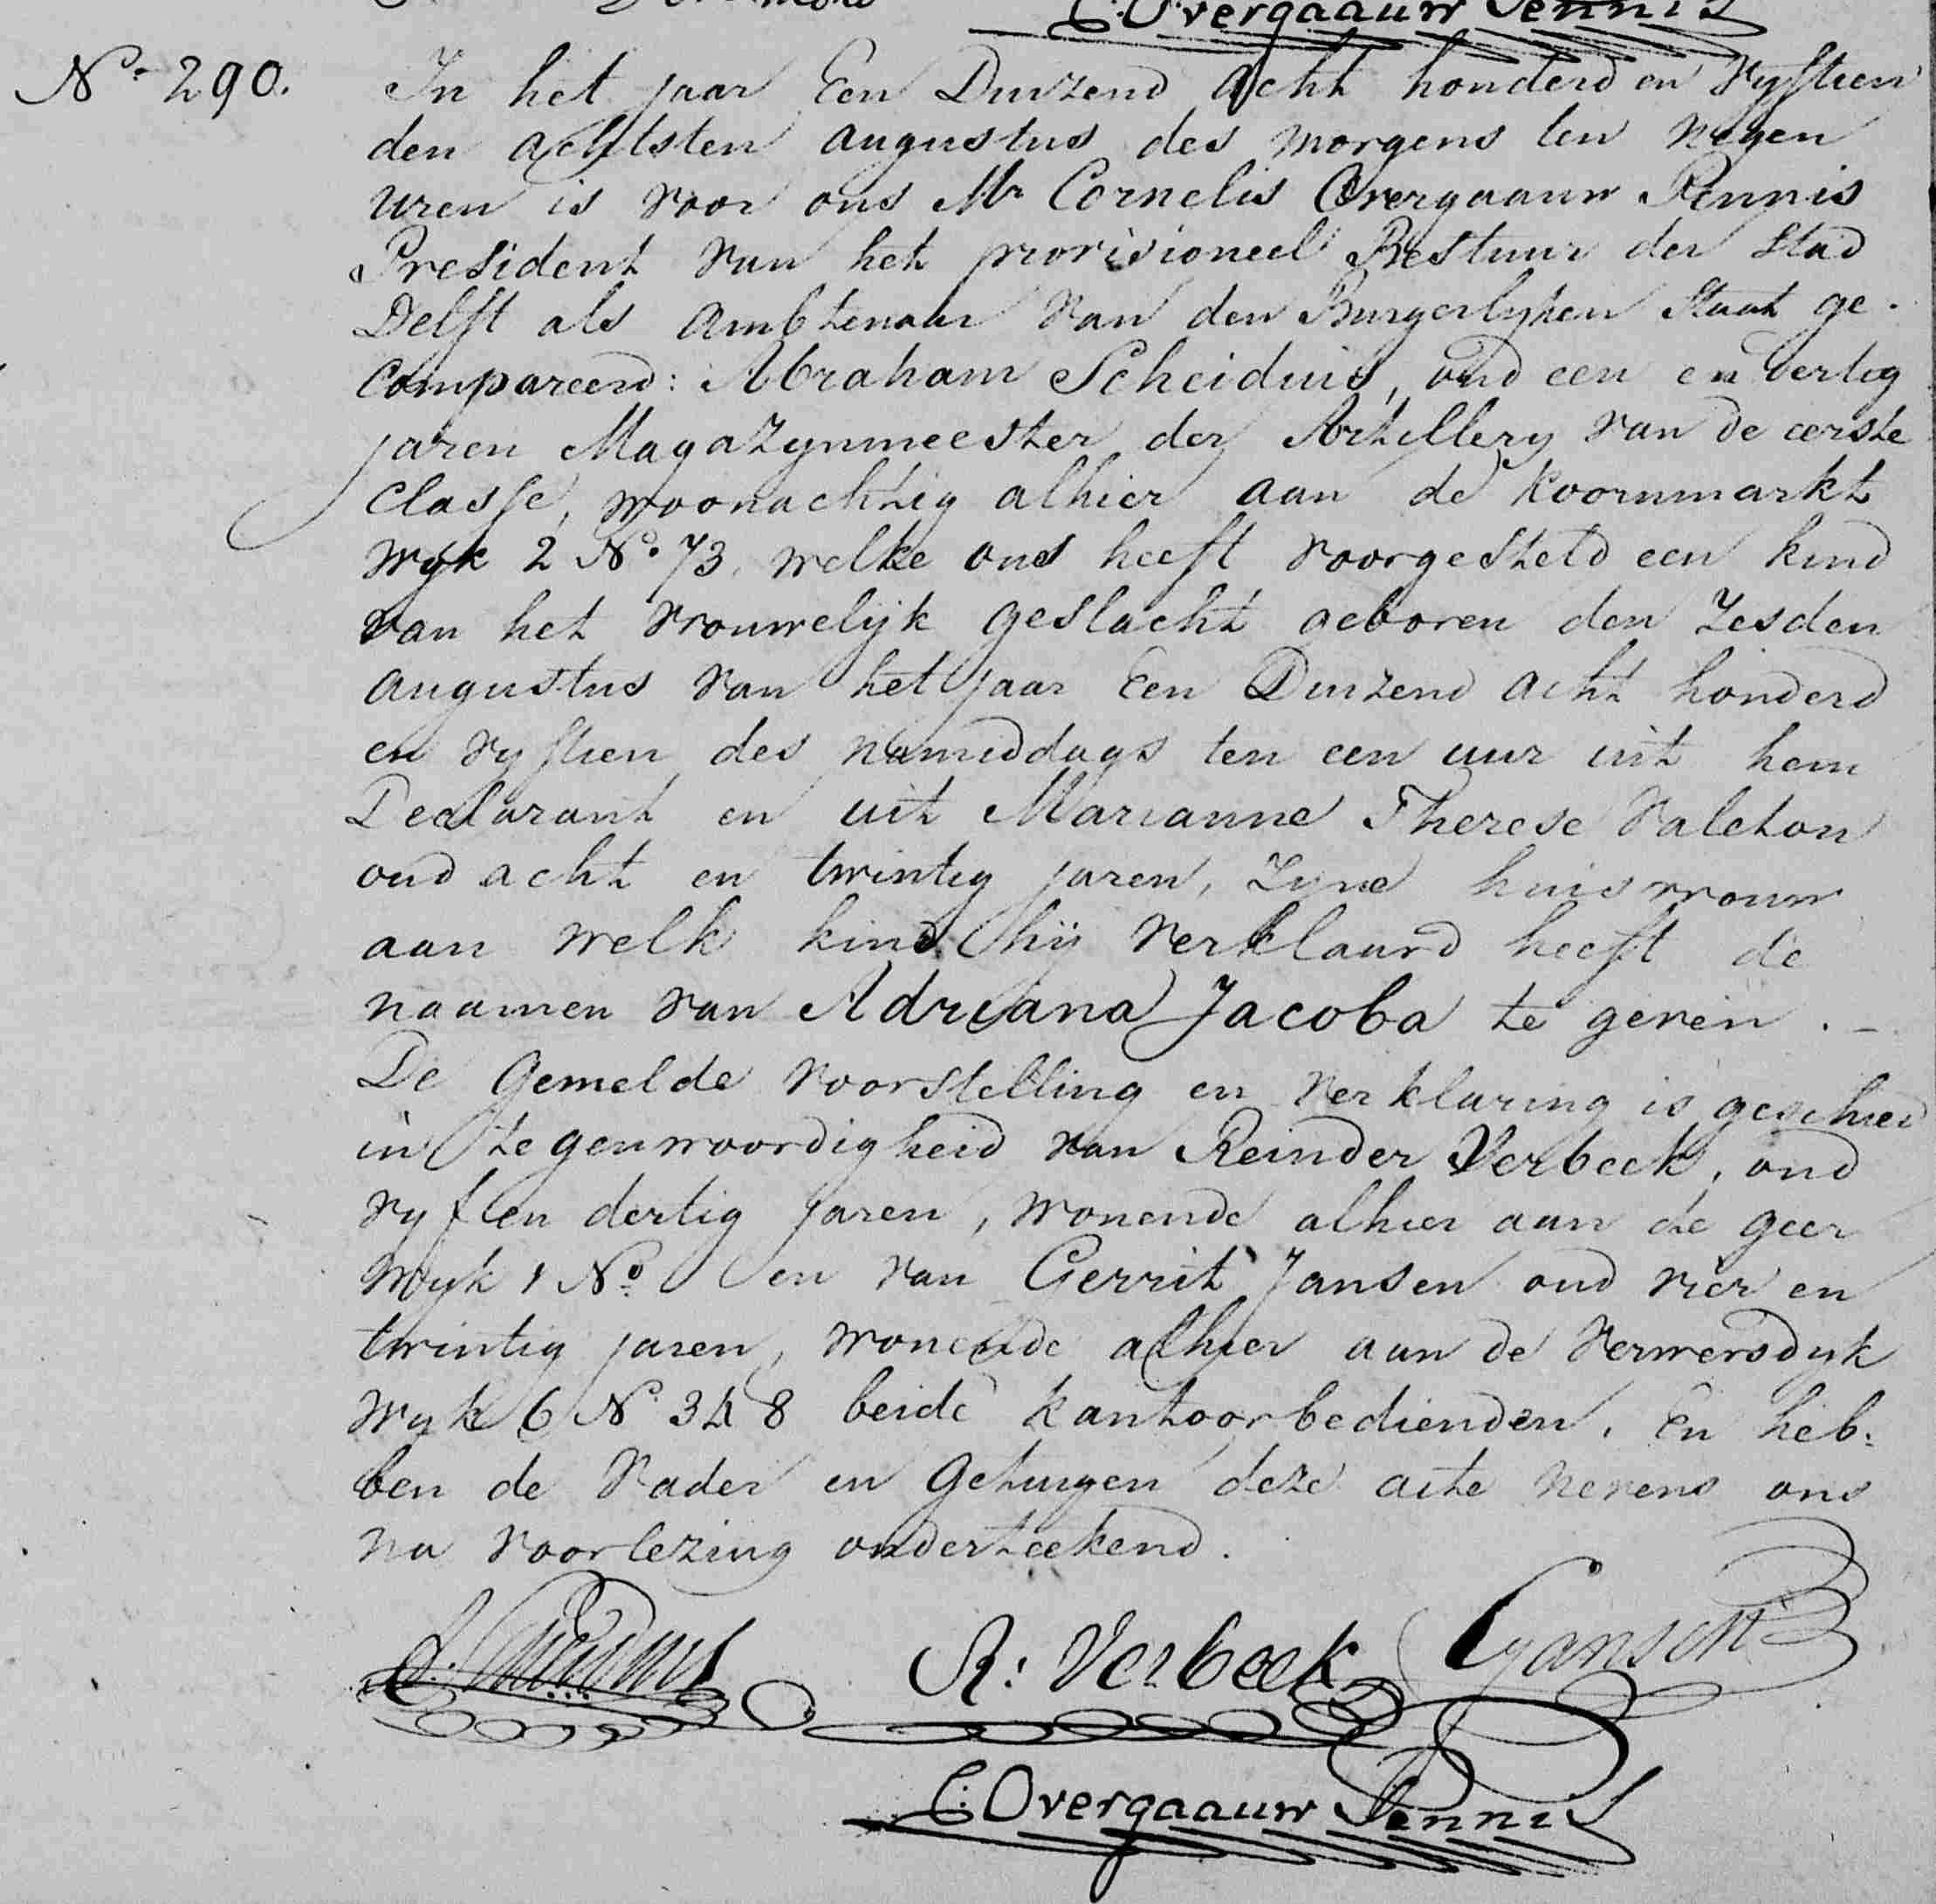 C: Overgaauw Pennis
No. 290.
In het jaar Een Duizend Acht honderd en Vyftien
den achtsten augustus des morgens ten negen
uren is voor ons Mr Cornelis Overgaauw Pennis
President van het provisioneel Bestuur der Stad
Delft als Ambtenaar van den Burgerlyken Staat ge-
compareerd: Abraham Scheidius, oud een en veertig
jaren Magazynmeester der Artillery van de eerste
Classe, woonachtig alhier aan de Koornmarkt
Wyk 2 No. 73, welke ons heeft voorgesteld een kind
van het vrouwelijk geslacht geboren den Zesden
augustus van het jaar Een Duizend acht honderd
en vyftien des namiddags ten een uur uit hem
Declarant en uit Marianne Therese Valeton
oud acht en twintig jaren, Zyne huisvrouw
aan welk kind hij verklaard heeft de
naamen van Adriana Jacoba te geven. -
De Gemelde voorstelling en verklaring is geschied
in tegenwoordigheid van Reinder Verbeek, oud
vyf en dertig jaren, wonende alhier aan de geer
Wyk 1 No. en van Gerrit Jansen oud vier en
twintig jaren, wonende alhier aan de Verwersdyk
Wyk 6 No 348 beide kantoorbedienden. En heb-
ben de Vader en Getuigen deze acte nevens ons
na voorlezing onderteekend.
A. Scheidius R: Verbeek G Jansen
C: Overgaauw Pennis